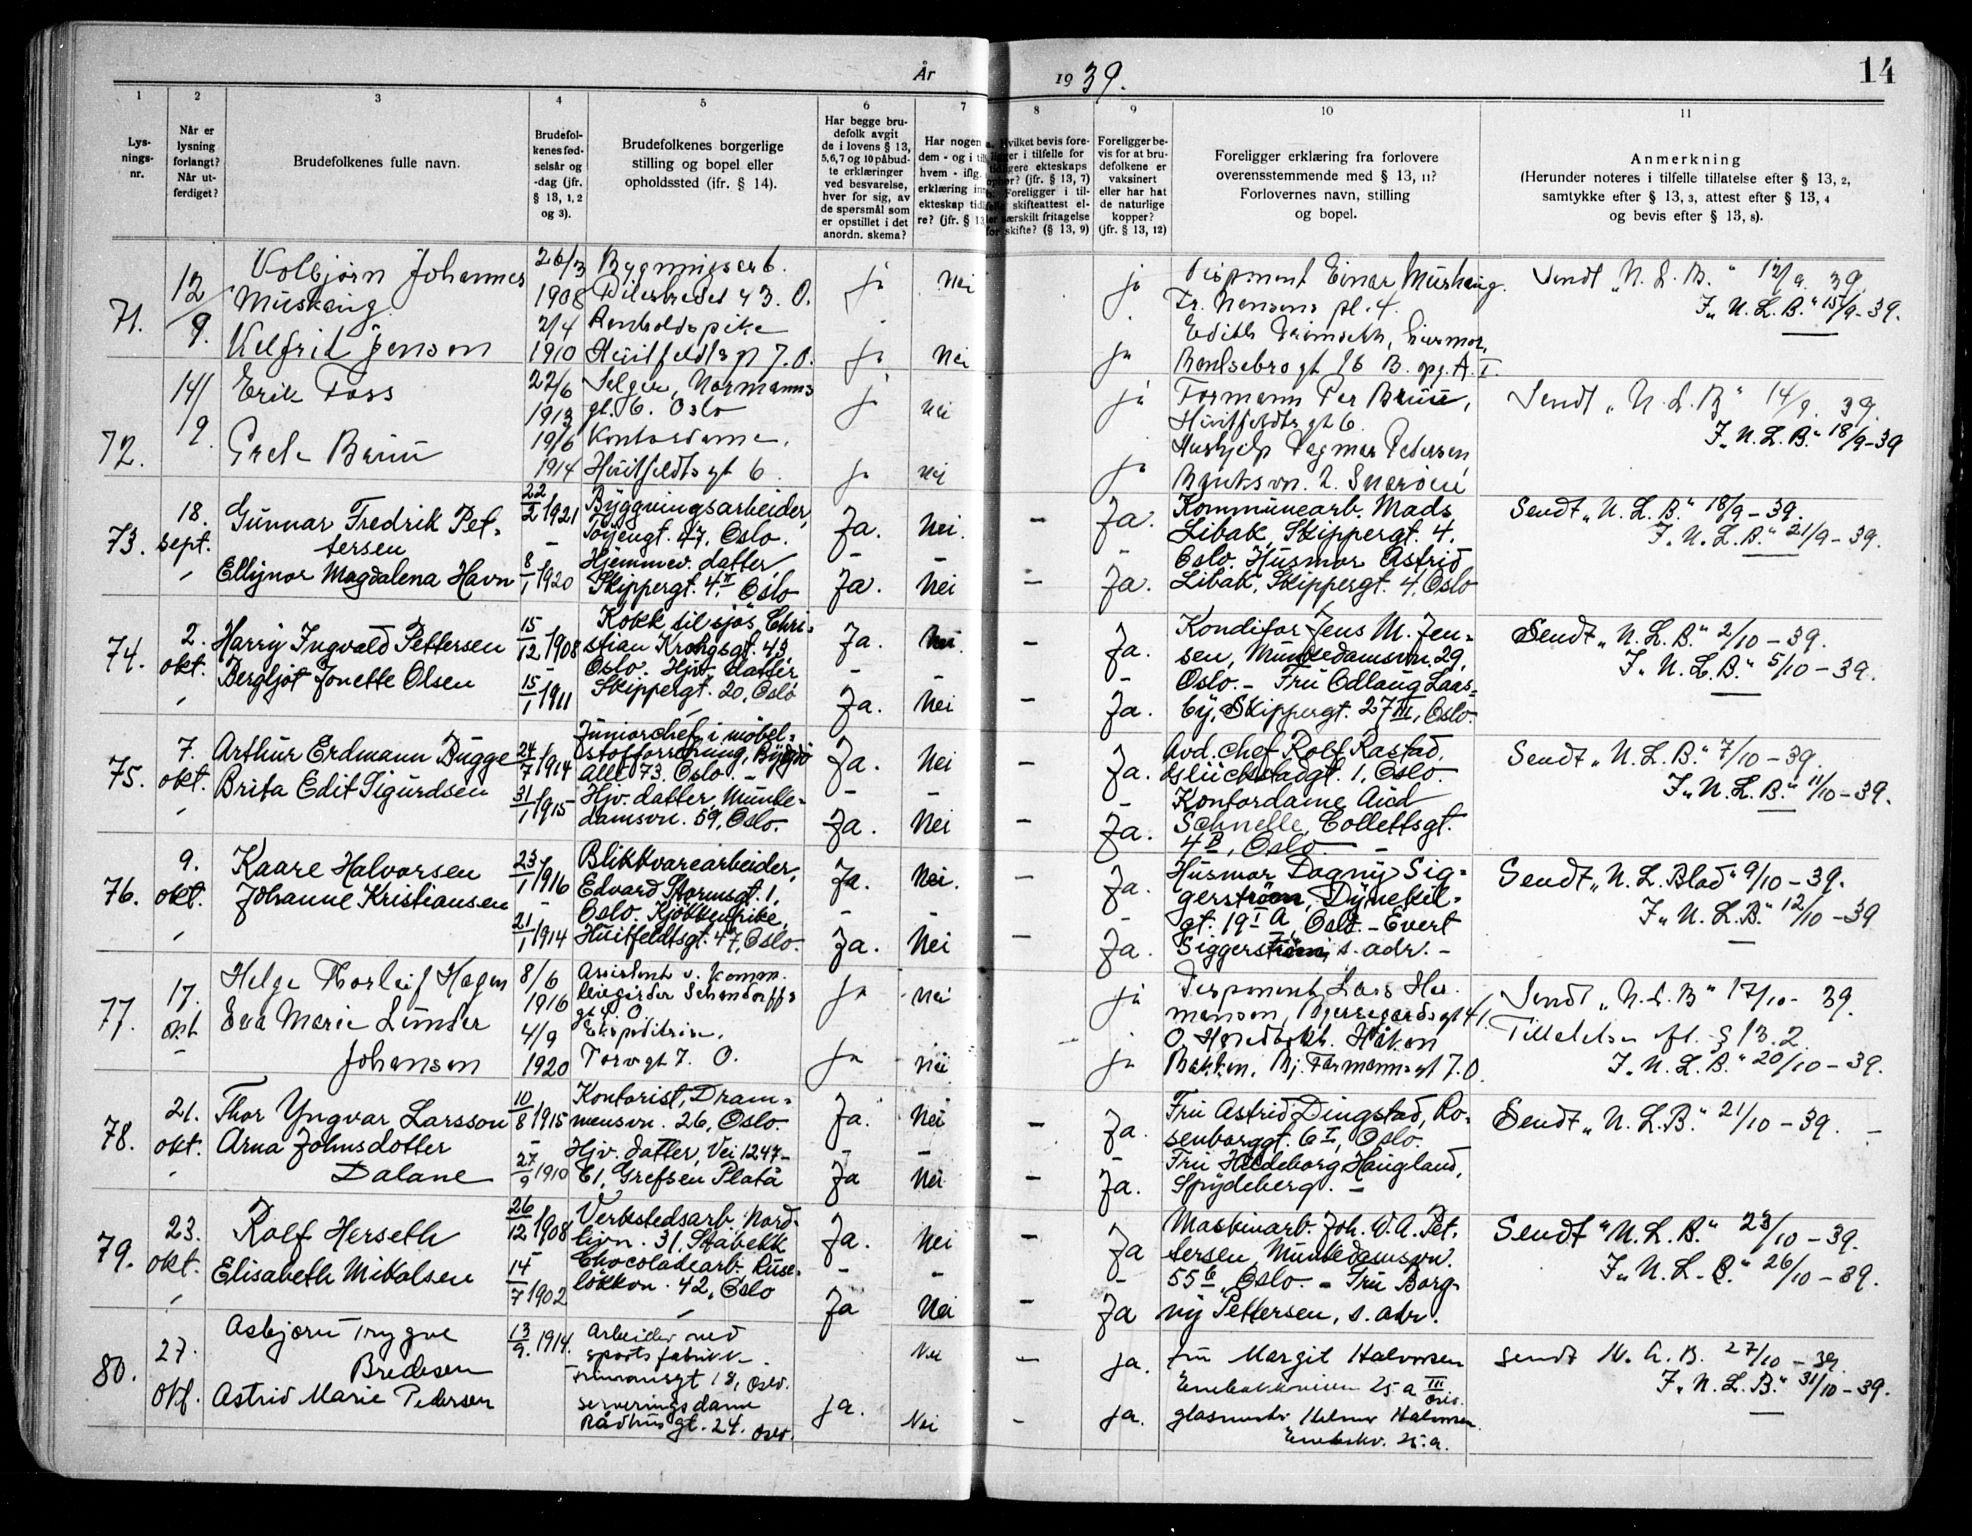 År 1939. 14
1 2 3 4 5 6 7 8 9 10 11
Lys-
nings-
nr.
Når er
lysning
forlangt?
Når ut-
ferdiget?
Brudefolkenes fulle navn.
Brudefol-
kenes fød-
selsår og
-dag (jfr.
§ 13, 1, 2
og 3).
Brudefolkenes borgerlige
stilling og bopel eller
opholdssted (jfr. § 14).
Har begge bru-
defolk avgit
de i lovens § 13,
5,6,7 og 10 påbud-
te erklæringer
ved besvarelse,
hver for sig, av
de spørsmål som
er opstillet i det
anordn. skema?
Har nogen a
dem - og i til
hvem - iflg.
erklæring inn
ekteskap tidl
re? (jfr. § 13
Hvilket bevis fore-
ligger i tilfelle for
tidligere ekteskaps
ophør? (jfr. § 13, 7)
Foreligger i til-
felle skifteattest el-
ler særskilt fritagelse
for skifte? (§ 13, 9)
Foreligger be-
vis for at bru-
defolkene er
vaksinert
eller har hat
de naturlige
kopper?
(jfr. § 13, 12)
Foreligger erklæring fra forlovere
overensstemmende med § 13, 11?
Forlovernes navn, stilling
og bopel.
Anmerkning
(Herunder noteres i tilfelle tillatelse efter § 13, 2,
samtykke efter § 13, 3, attest efter § 13, 4
og bevis efter § 13, 8).
71. 12/9.
Kolbjørn Johannes
Müshaug.
26/3
1908
Bygningsarb.
43. O.
ja nei ja
Disponent Einar Müshaug.
Fr. Nansens pl. 4.
Sendt "N. L. B." 12/9. 39.
I "N. L. B." 15/9-39.
Velfrid Jensen
2/4
1910
Renholdspike
Hüitfeldtsg 7. O.
ja nei ja
Edith
Bentsebrogt 16 B. opg. A. I.
72. 14/9
Erik Foss
22/6
1913
Selger, Normanns
gt. 6. Oslo
ja nei ja
Formann Per Brüü,
Hüitfeldtsgt 6.
Sendt "N. L. B" 14/9. 39.
I "N. L. B." 18/9-39
Grete Brüü
19/6
1914
Kontordame.
Hüitfeldtsgt 6.
ja nei ja
Hushjelp Dagmar Pedersen,
2. Snarøen
73. 18. sept.
Gunnar Fredrik Pet-
tersen
22/2 1921
Byggningsarbeider,
Tøyengt. 47, Oslo.
Ja. Nei. – Ja.
Kommunearb. Mads
Libak, Skippergt. 4.
Sendt "N. L. B." 18/9-39.
I "N. L. B." 21/9-39.
Ellynor Magdalena Havn
8/1 1920
Hjemmev. datter
Skippergt. 4 II Oslo
Ja. Nei – Ja.
Oslo. Husmor Astrid
Libak, Skippergt. 4, Oslo
74. 2. okt.
Harry Ingvald Pettersen
15/12 1908
Kokk tilsjøs, Chri-
stian Krohgsgt. 43
Ja. Nei. – Ja.
Konditor Jens M. Jen-
sen, Munkedamsvn 29,
Sendt "N. L. B." 2/10-39.
I "N. L. B." 5/10-39.
Bergljot Jonette Olsen
15/1 1911
Oslo. Hjv. datter
Skippergt. 20, Oslo
Ja. Nei – Ja.
Oslo. – Fru Odlaug Laas-
by, Skippergt. 27 III, Oslo.
75. 7. okt.
Arthur Erdmann Bugge
24/7 1914
Juniorchef i møbel-
stofforretning, Bygdø
alle 73. Oslo. –
Ja. Nei – Ja.
Avd. chef Rolf Rastad,
Glückstadgt. 1, Oslo.
Sendt "N. L. B." 7/10-39.
I "N. L. B." 11/10-39.
Brita Edit Sigurdsen
31/1 1915
Hjv. datter, Munke-
damsvn. 59, Oslo.
Ja. Nei – Ja.
Kontordame Aud
Schnelle, Collettsgt.
4 B, Oslo –
76. 9. okt.
Kaare Halvorsen
23/1 1916
Blikkvarearbeider,
Edvard Stormsgt. 1.
Ja. Nei. – Ja.
Husmor Dagny Sig-
gerström, Dynekil-
Sendt "N. L. Blad" 9/10-39.
I "N. L. B." 12/10-39
Johanne Kristiansen
21/1 1914
Oslo. Kjøkkenpike,
Huitfeldtsgt. 47, Oslo.
Ja. Nei – Ja.
gt. 19 I A, Oslo – Evert
Siggerström, s. adr. –
77. 17. okt.
Helge Thorleif Hagen
8/6
1916
Assistent v. komm.
Schandorffs
gt. 4. O.
ja nei ja
Disponent Lars Her-
mansen, Bjerregårdsgt 41.
Sendt "N. L. B" 17/10-39.
Tillatelse efl. § 13. 2.
I "N. L. B." 20/10-39.
Eva Marie Lunder
Johansen
4/9
1920
Ekspeditrise.
Torvgt 7. O.
ja nei ja
O. Håkon
Bakken, Bj. Farmannsgt 7. O.
78. 21. okt.
Thor Yngvar Larsson
10/8 1915
Kontorist, Dram-
mensvn. 26, Oslo.
Ja. Nei – Ja.
Fru Astrid Dingstad, Ro-
senborggt. 6 I, Oslo.
Sendt "N. L. B." 21/10-39. –
Arna Johnsdotter
Dalane
27/9 1910
Hjv. datter, Vei 1247-
E1, Grefsen Platå
Ja Nei – Ja.
Fru Hildeborg Haugland,
Spydeberg. –
79. 23. okt.
Rolf Herseth
26/12 1908
Verkstedsarb. Nord-
livn. 31, Stabekk
Ja. Nei – Ja
Maskinarb. Joh. W. A. Pet-
tersen, Munkedamsvn.
Sendt "N. L. B." 23/10-39.
I "N. L. B." 26/10-39.
Elisabeth Mikalsen
14/7 1902
Chocoladearb. Ruse-
løkkvn. 42, Oslo
Ja Nei – Ja
55 b, Oslo – Fru Borg-
ny Pettersen, s. adr.
80. 27. okt.
Asbjørn Trygve
Bredesen
13/9. 1914.
Arbeider ved
sportsfabrikk.
18, Oslo.
Nei – ja.
fru Margit Halvorsen
Enebakkveien 25 a III
Oslo.
Sendt N. L. B. 27/10-39.
I "N. L. B." 31/10-39.
Astrid Marie Pedersen
serveringsdame
Rådhusgt. 24. Oslo.
ja. Nei – ja.
glasmester Helmer Halvorsen
Enebakkv. 25. a.